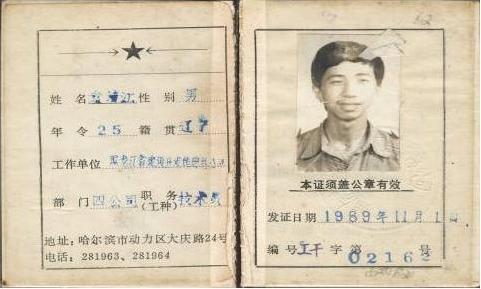 姓名 性别 男
年令 25 籍贯 辽宁
工作单位
部门 四公司 职务(工种) 技术员
地址:哈尔滨市动力区大庆路24号
电话:281963、281964
本证须盖公章有效
发证日期 1989年11月1日
编号 工干 字第 02162 号